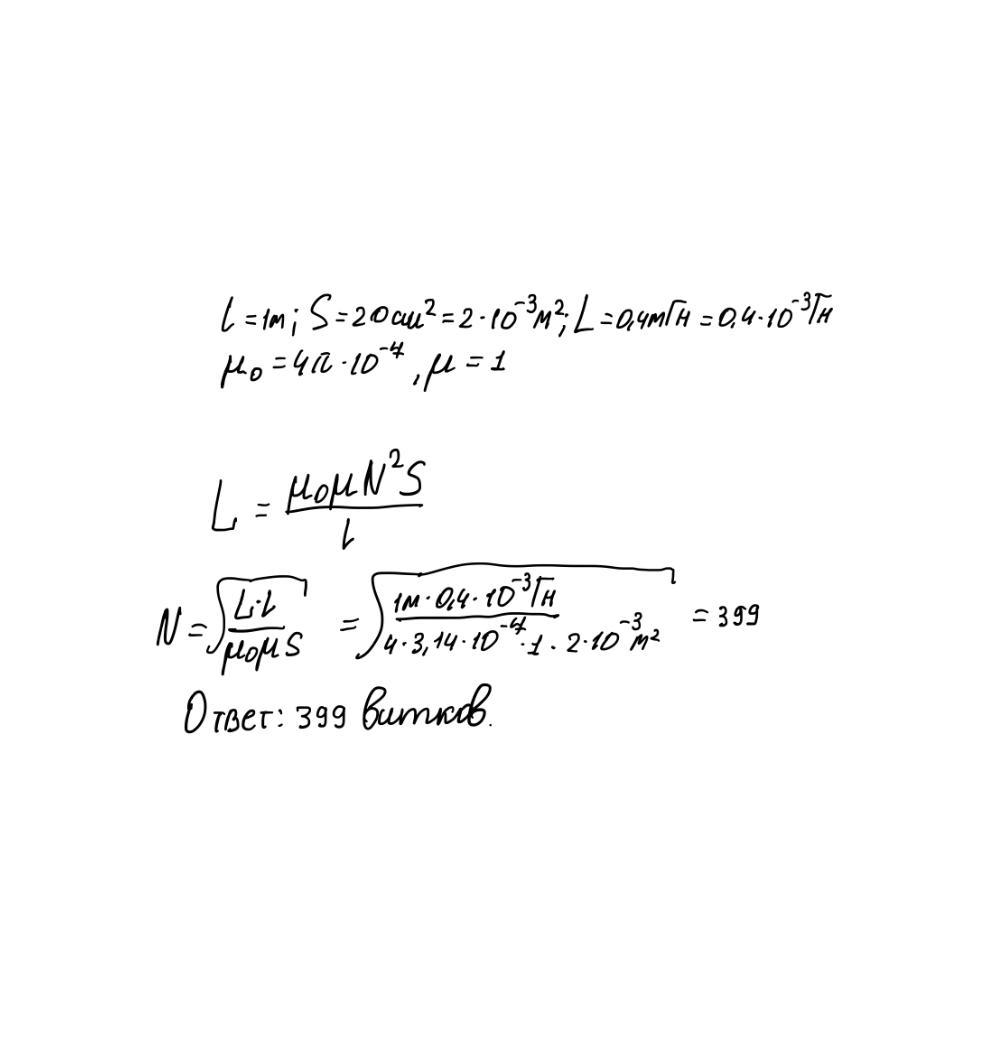 l = 1м; S = 20 см² = 2 · 10⁻³ м²; L = 0,4 мГн = 0,4 · 10⁻³ Гн
μ₀ = 4π · 10⁻⁷, μ = 1
L = μ₀μN²S / l
N = √(L·l / μ₀μS) = √(1м · 0,4 · 10⁻³ Гн / 4 · 3,14 · 10⁻⁷ · 1 · 2 · 10⁻³ м²) = 399
Ответ: 399 витков.